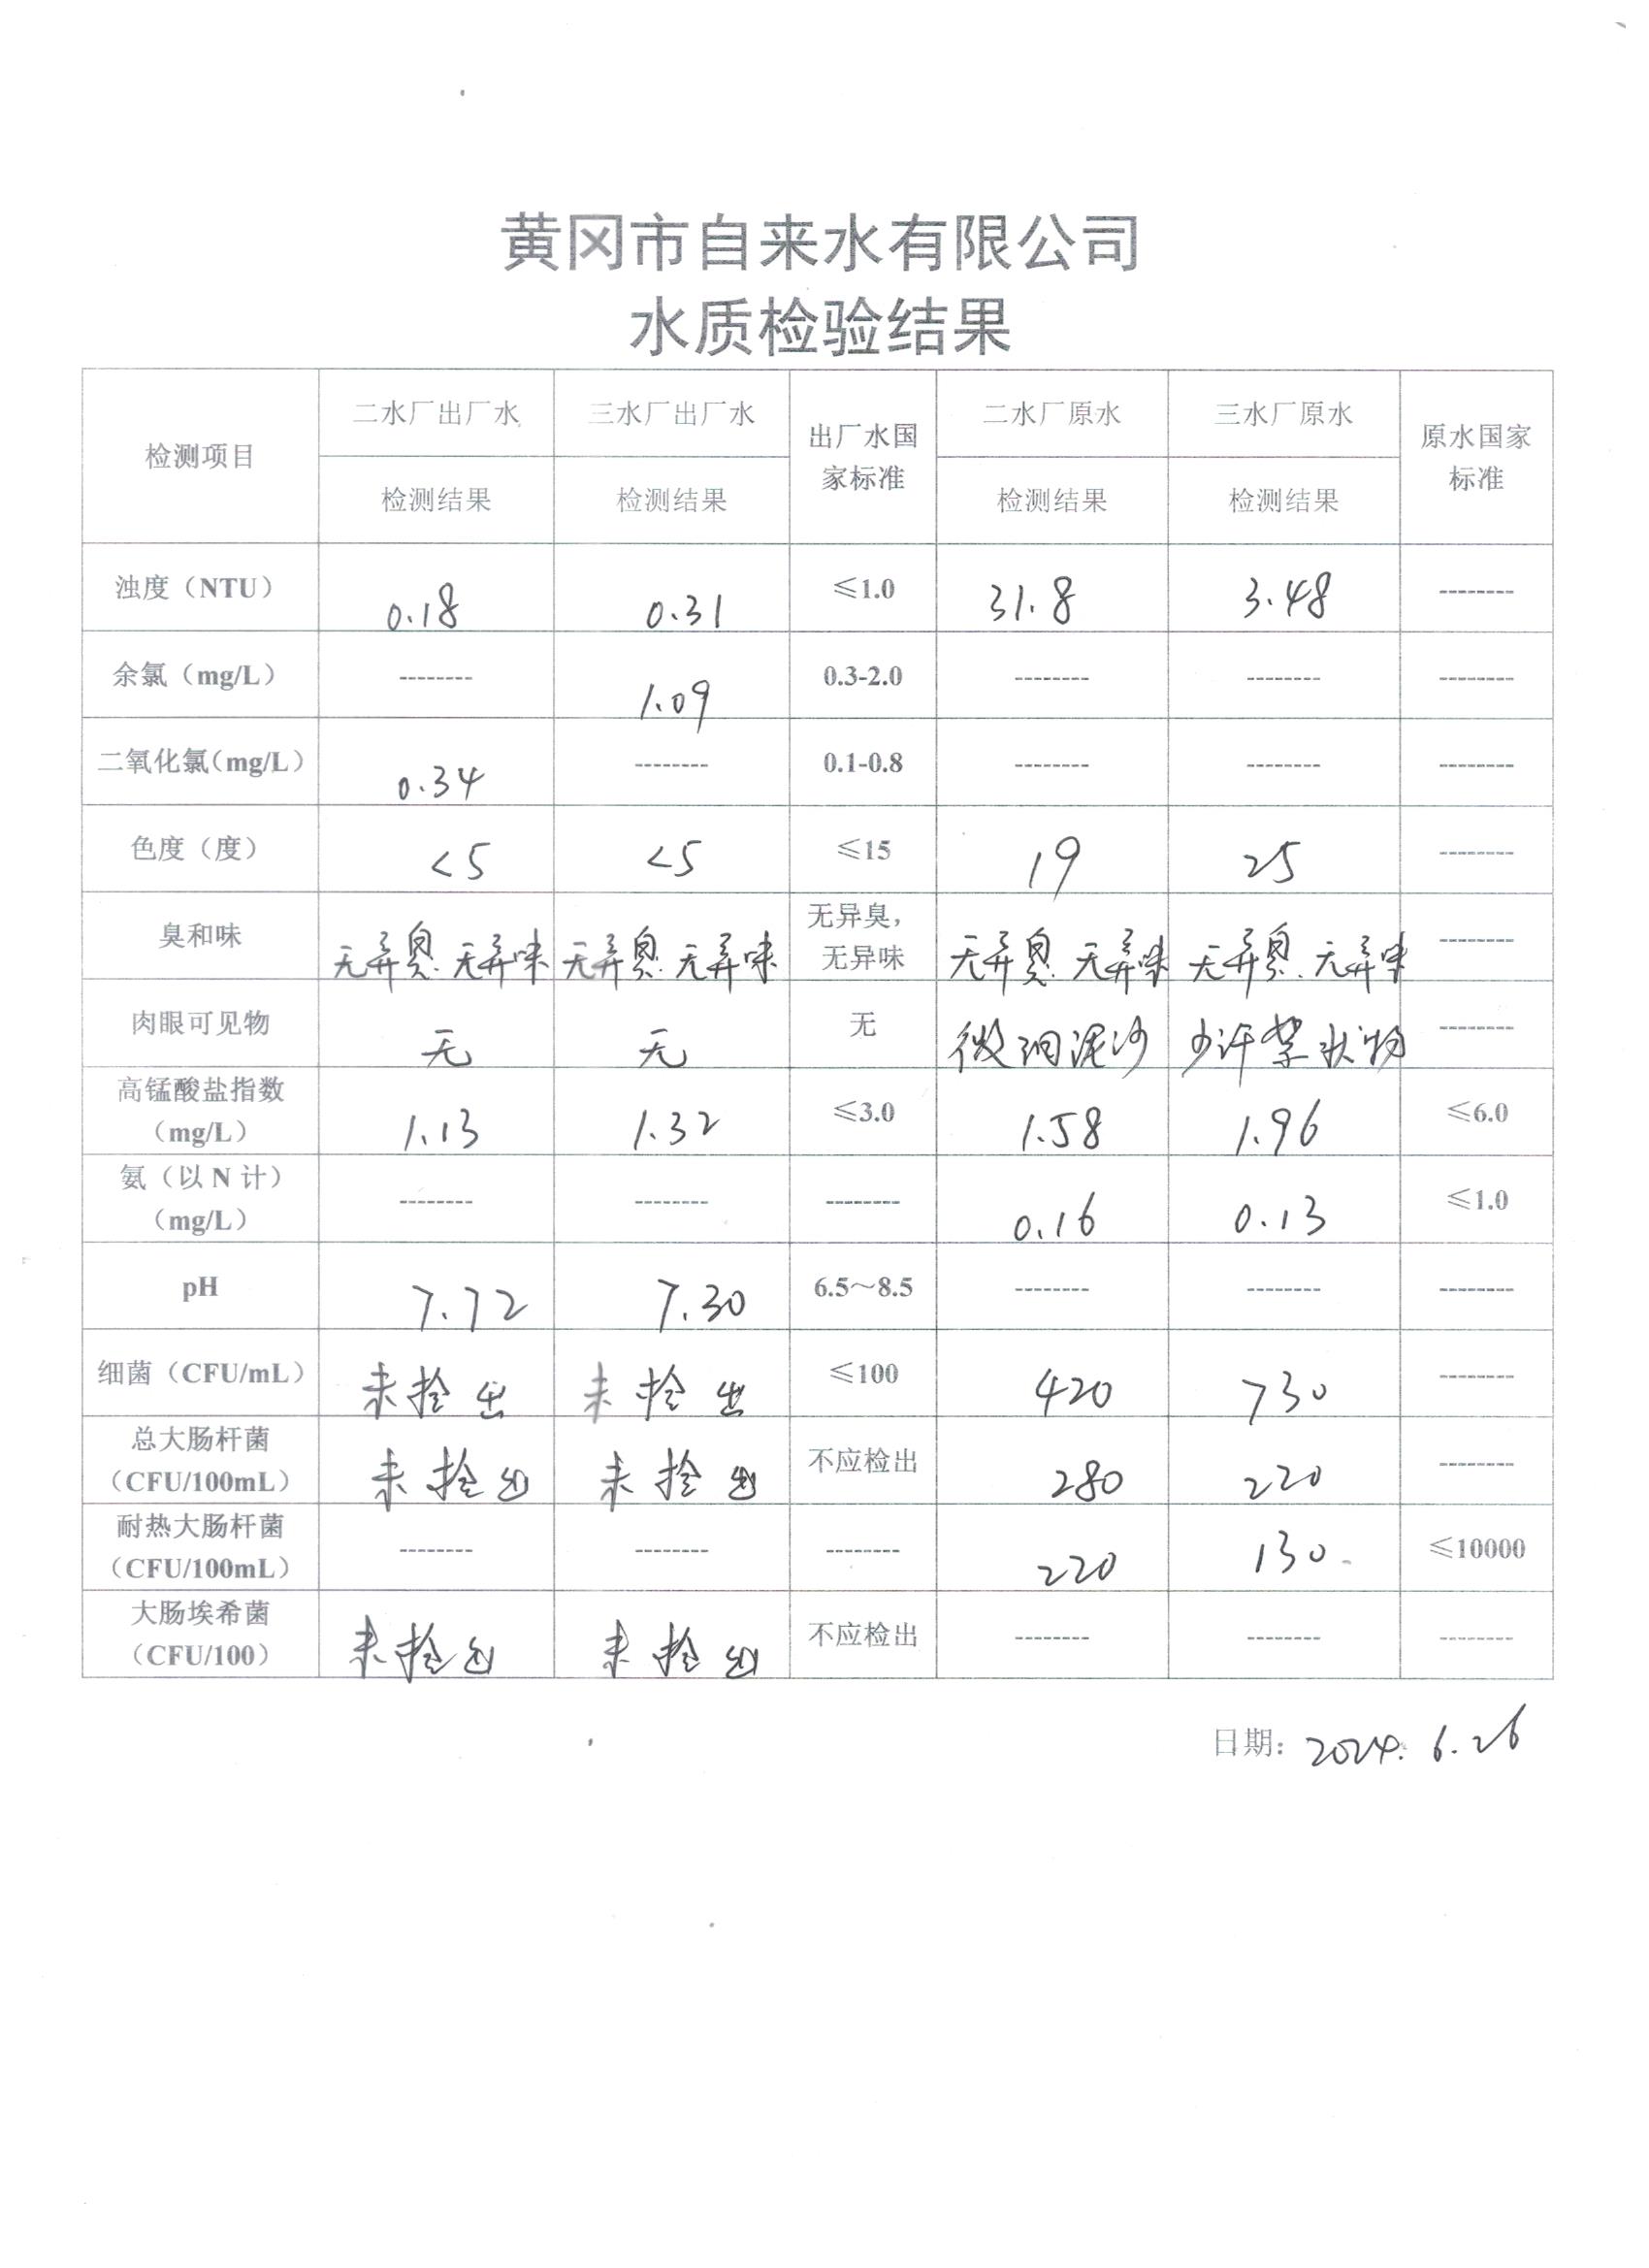 黄冈市自来水有限公司
水质检验结果
检测项目 二水厂出厂水 三水厂出厂水 出厂水国家标准 二水厂原水 三水厂原水 原水国家标准
检测结果 检测结果 检测结果 检测结果
浊度（NTU） 0.18 0.31 ≤1.0 31.8 3.48 --------
余氯（mg/L） -------- 1.09 0.3-2.0 -------- -------- --------
二氧化氯(mg/L) 0.34 -------- 0.1-0.8 -------- -------- --------
色度（度） <5 <5 ≤15 19 25 --------
臭和味 无异臭.无异味 无异臭.无异味 无异臭，无异味 无异臭.无异味 无异臭.无异味 --------
肉眼可见物 无 无 无 微细泥沙 少许絮状物 --------
高锰酸盐指数（mg/L） 1.13 1.32 ≤3.0 1.58 1.96 ≤6.0
氨（以 N 计）（mg/L） -------- -------- -------- 0.16 0.13 ≤1.0
pH 7.72 7.30 6.5～8.5 -------- -------- --------
细菌（CFU/mL） 未检出 未检出 ≤100 420 730 --------
总大肠杆菌（CFU/100mL） 未检出 未检出 不应检出 280 220 --------
耐热大肠杆菌（CFU/100mL） -------- -------- -------- 220 130 ≤10000
大肠埃希菌（CFU/100） 未检出 未检出 不应检出 -------- -------- --------
日期：2024.6.26